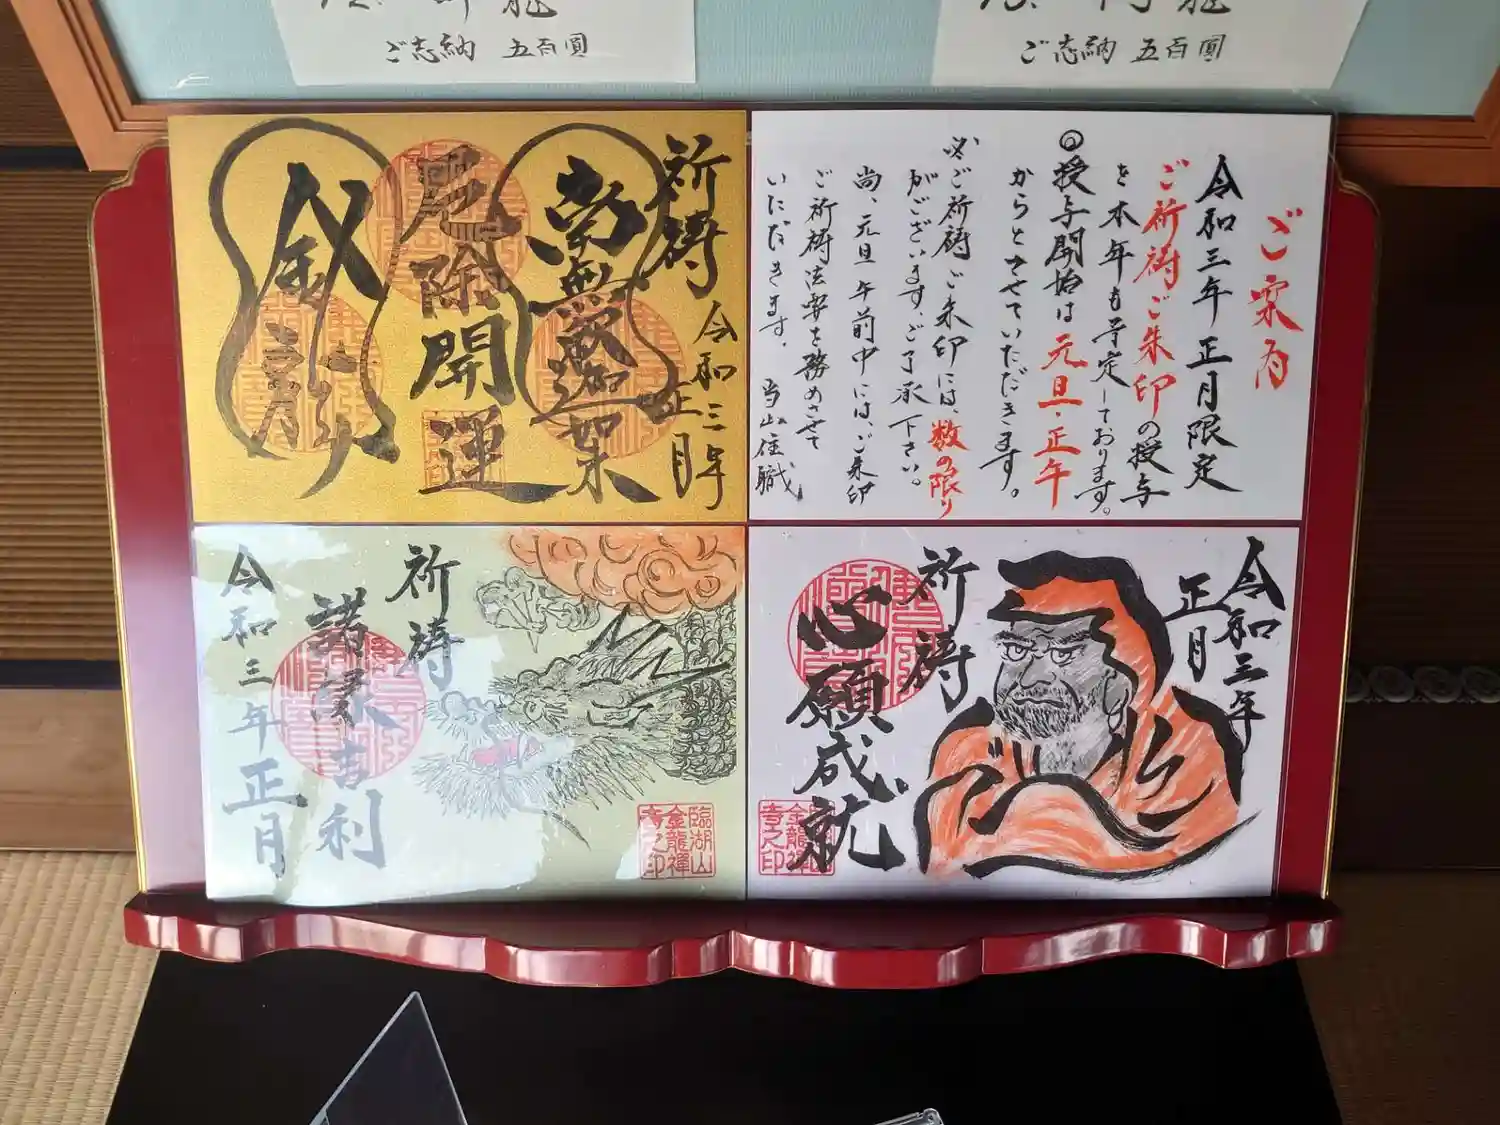 ご志納 五百圓
ご志納 五百圓
ご案内
令和三年 正月限定
ご祈祷ご朱印の授与
を本年も予定しております。
◎授与開始は 元旦・正午
からとさせていただきます。
※ご祈祷ご朱印には、数の限り
がございます、ご了承下さい。
尚、元旦午前中には、ご朱印
ご祈祷法要を務めさせて
いただきます。 当山住職
祈祷 令和三年
正月
南無釈迦如来
厄除開運
金龍
祈祷
諸縁吉利
令和三年 正月
臨湖山
金龍禅
寺之印
令和三年
正月
祈祷
心願成就
金龍禅
寺之印